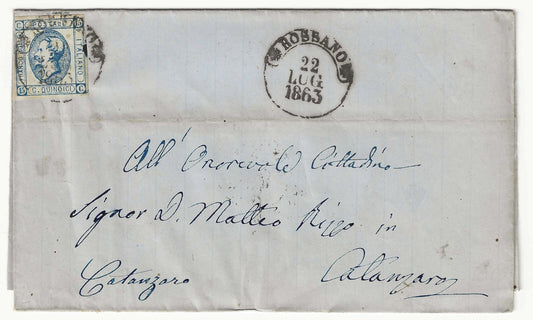 FRANCO
BOLLO
ITALIANO
C. QUINDICI
C 15
15 C
ROSSANO
22
LUG
1863
All' Onorevole Cittadino
Signor D. Matteo Rizzo in
Catanzaro
Catanzaro